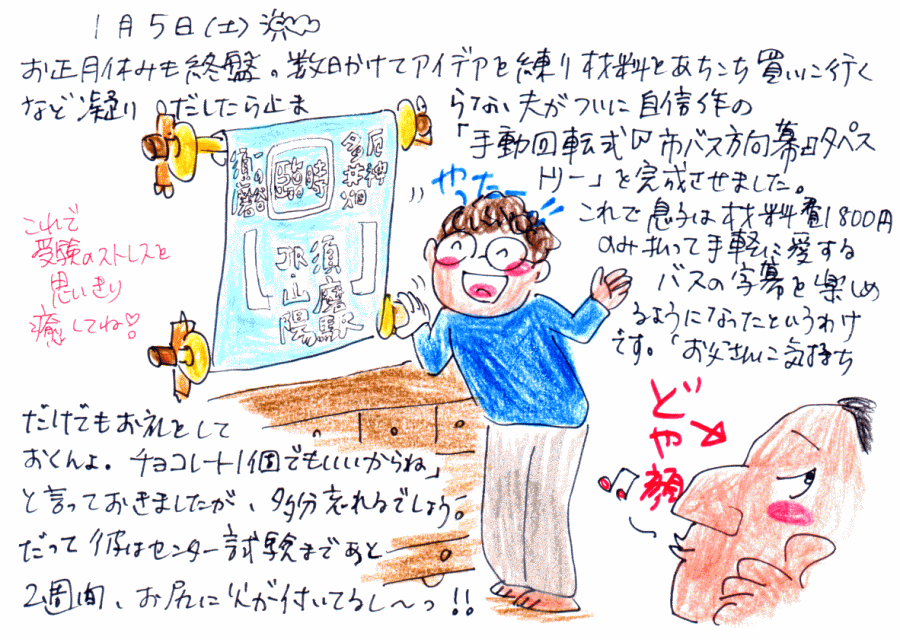 1月5日(土)
お正月休みも終盤。数日かけてアイデアを練り材料をあちこち買いに行く
など凝りだしたら止まらない夫がついに自信作の
「手動回転式市バス方向幕タペス
トリー」を完成させました。
これで息子は材料費1800円
のみ払って手軽に愛する
バスの字幕を楽しめ
るようになったというわけ
です。「お父さんに気持ち
だけでもお礼として
おくんよ。チョコレート1個でもいいからね」
と言っておきましたが、多分忘れるでしょう。
だって彼はセンター試験まであと
2週間、お尻に火が付いてるし〜っ!!
須磨
臨時
多井畑
厄神
JR山陽
須磨駅
やったー
これで
受験のストレスを
思いきり
癒してね♡
どや顔